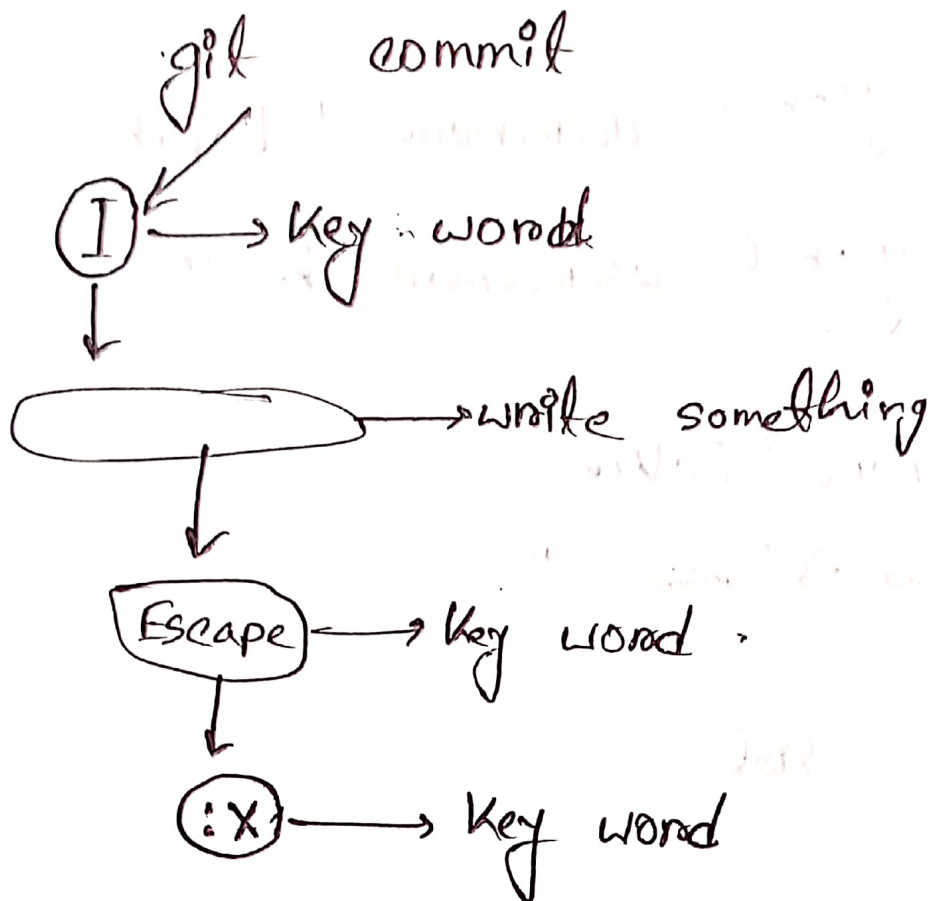 git commit
I Key word
write something
Escape Key word
:x Key word